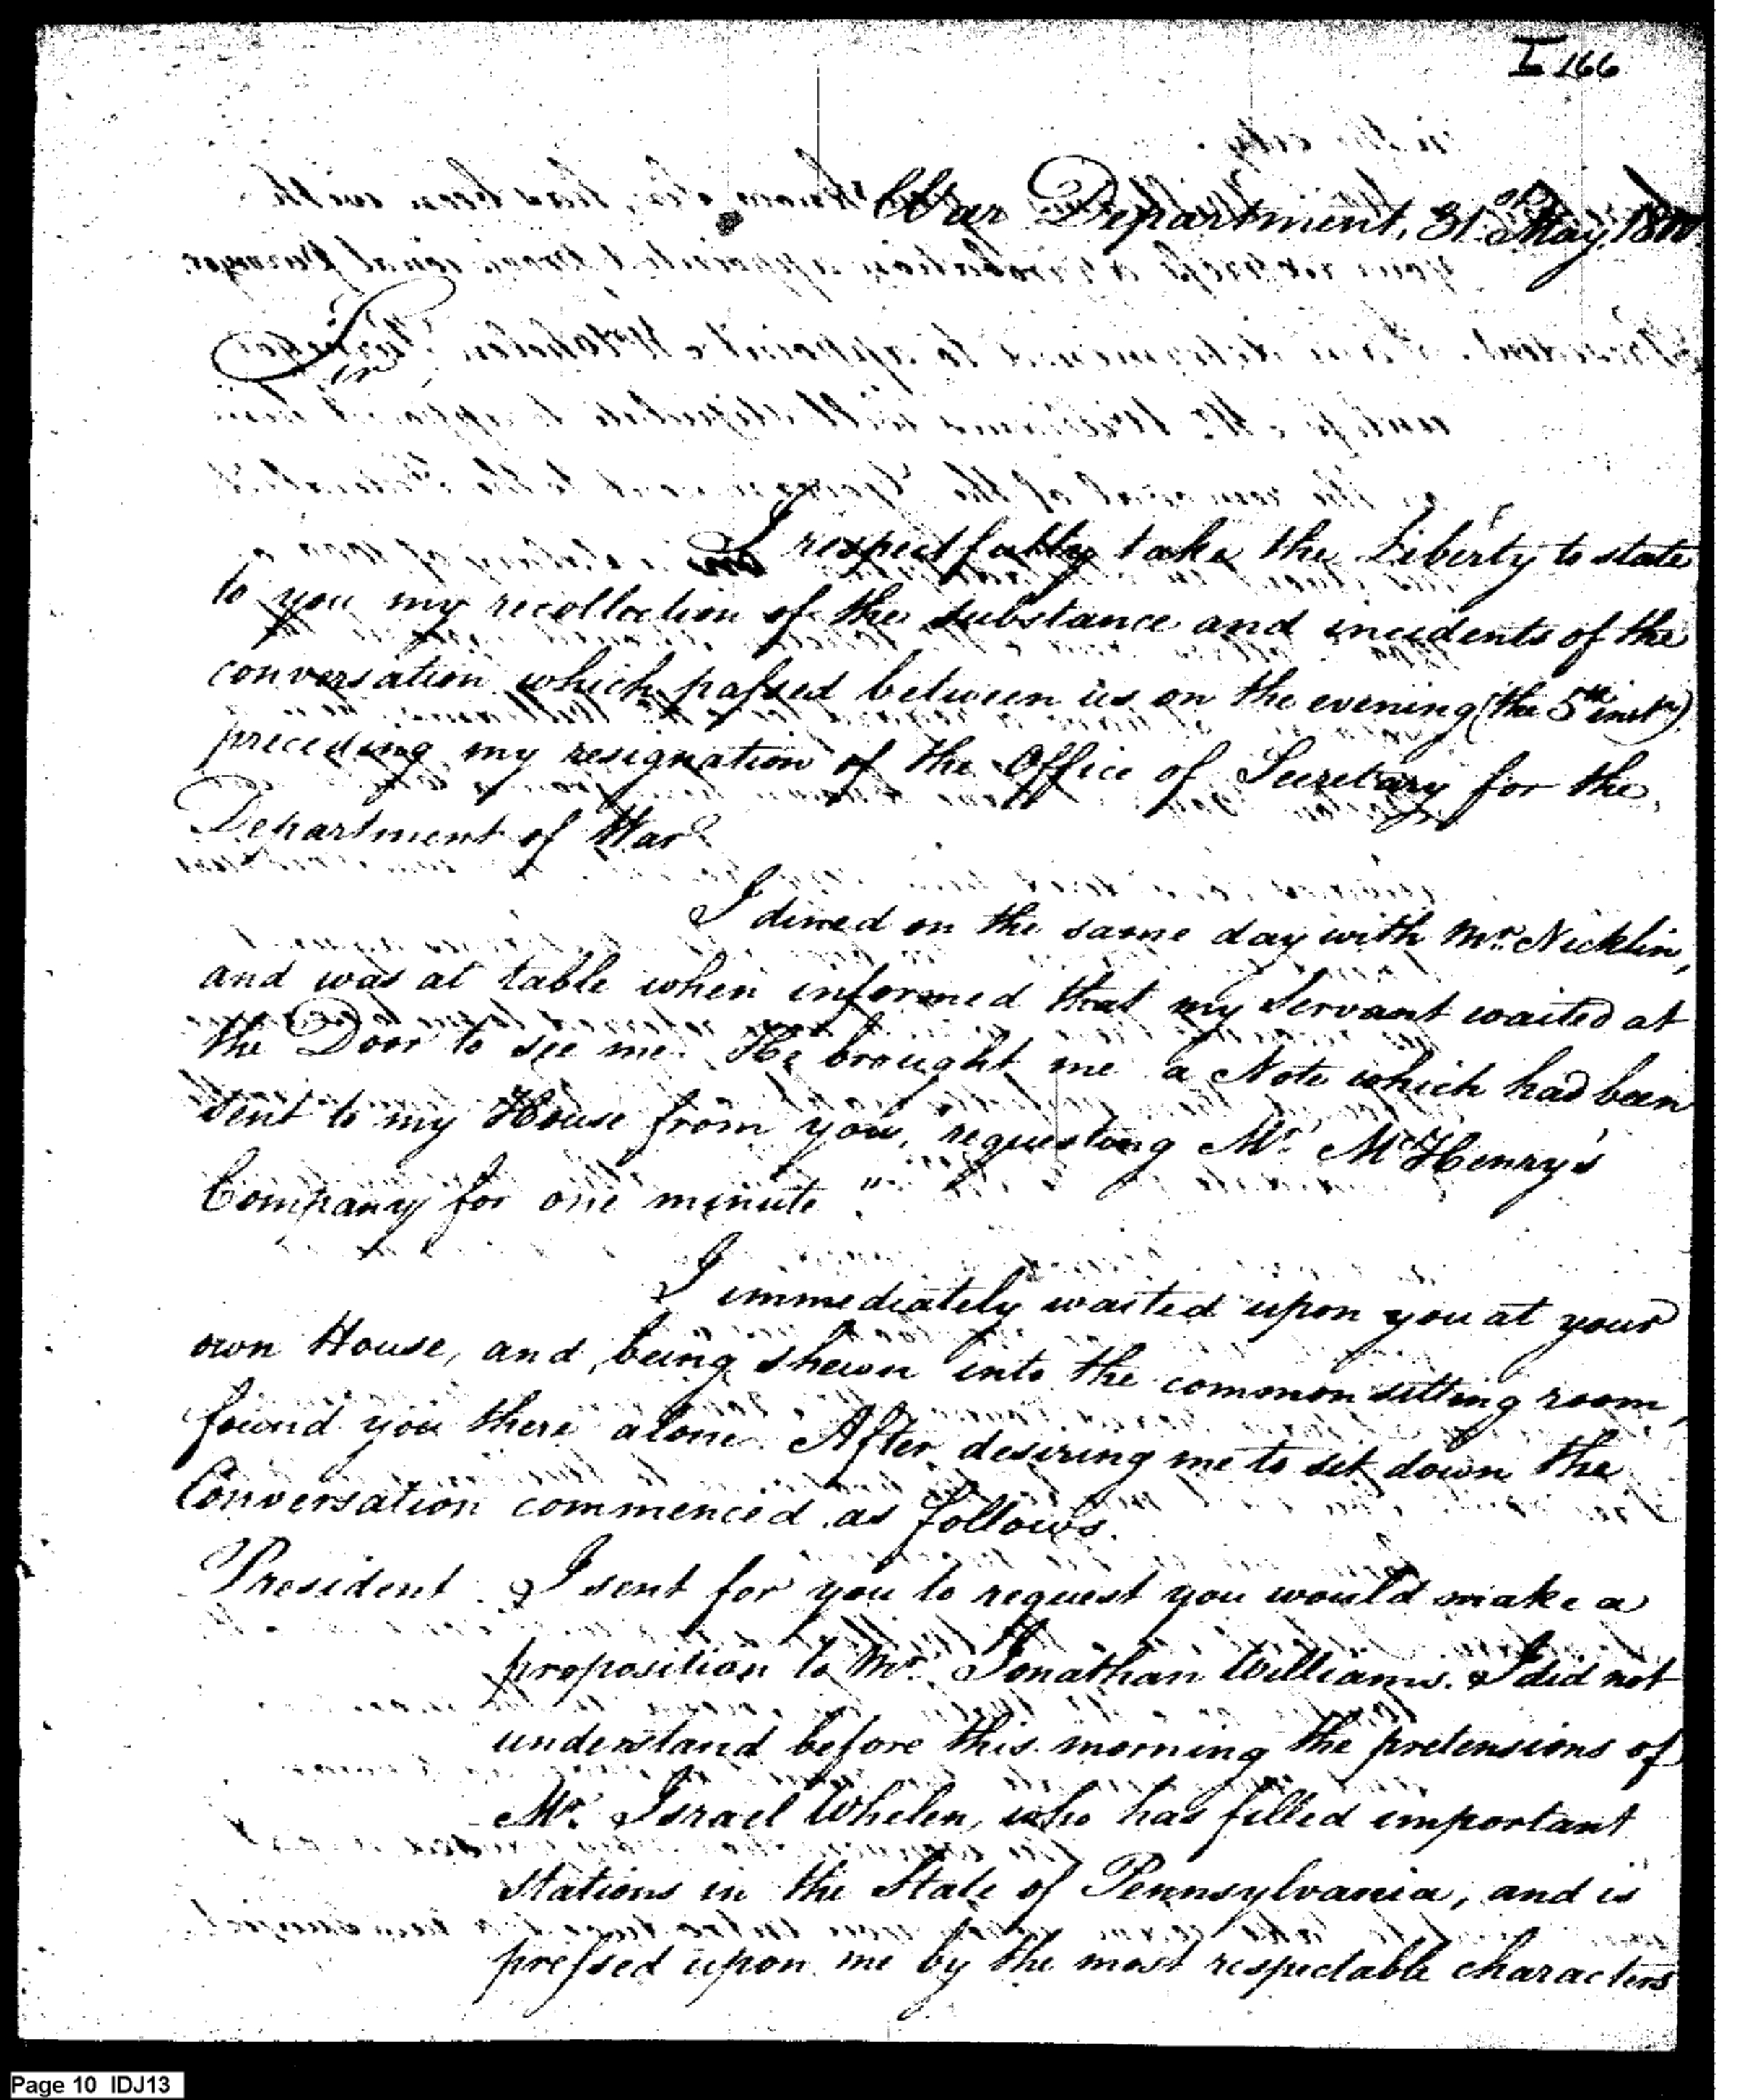 I 166
War Department, 31st May, 1800
Sir
I respectfully take the Liberty to state
to you my recollection of the substance and incidents of the
conversation which passed between us on the evening (the 5th instn)
preceding my resignation of the Office of Secretary for the
Department of War.
I dined on the same day with Mr. Nicklin,
and was at table when informed that my Servant waited at
the Door to see me. He brought me a Note which had been
sent to my House from you, requesting Mr. McHenry's
Company for one minute".
I immediately waited upon you at your
own House, and being shewn into the common sitting room,
found you there alone. After desiring me to sit down the
Conversation commenced as follows.
President I sent for you to request you would make a
proposition to Mr. Jonathan Williams. I did not
understand before this morning the pretensions of
Mr. Israel Whelen, who has filled important
stations in the State of Pennsylvania, and is
pressed upon me by the most respectable characters
Page 10 IDJ13